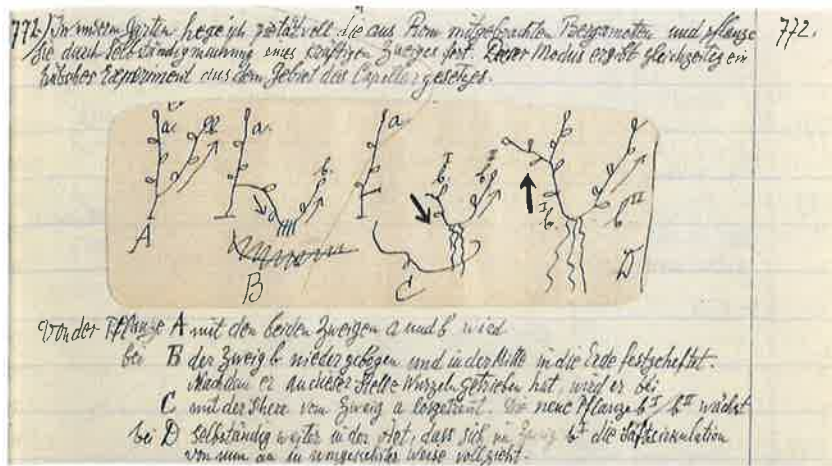 772.) In unserm Garten hege ich pietätvoll die aus Rom mitgebrachten Bergamotten und pflanze
sie durch Selbständigmachung eines kräftigen Zweiges fort. Dieser Modus ergibt gleichzeitig ein
hübsches Experiment aus dem Gebiet des Capillargesetzes.
772.
a. b. a. b. a. b I b II b I b II
A B C D
Von der Pflanze A mit den beiden Zweigen a und b wird
bei B der Zweig b niedergebogen und in der Mitte in die Erde festgeheftet.
Nachdem er an dieser Stelle Wurzeln getrieben hat, wird er bei
C mit der Shere vom Zweig a losgetrennt. Die neue Pflanze b I / b II wächst
bei D selbständig weiter in der Art, dass sich im Zweig b I die Saftcirculation
von nun an in umgekehrter Weise vollzieht.